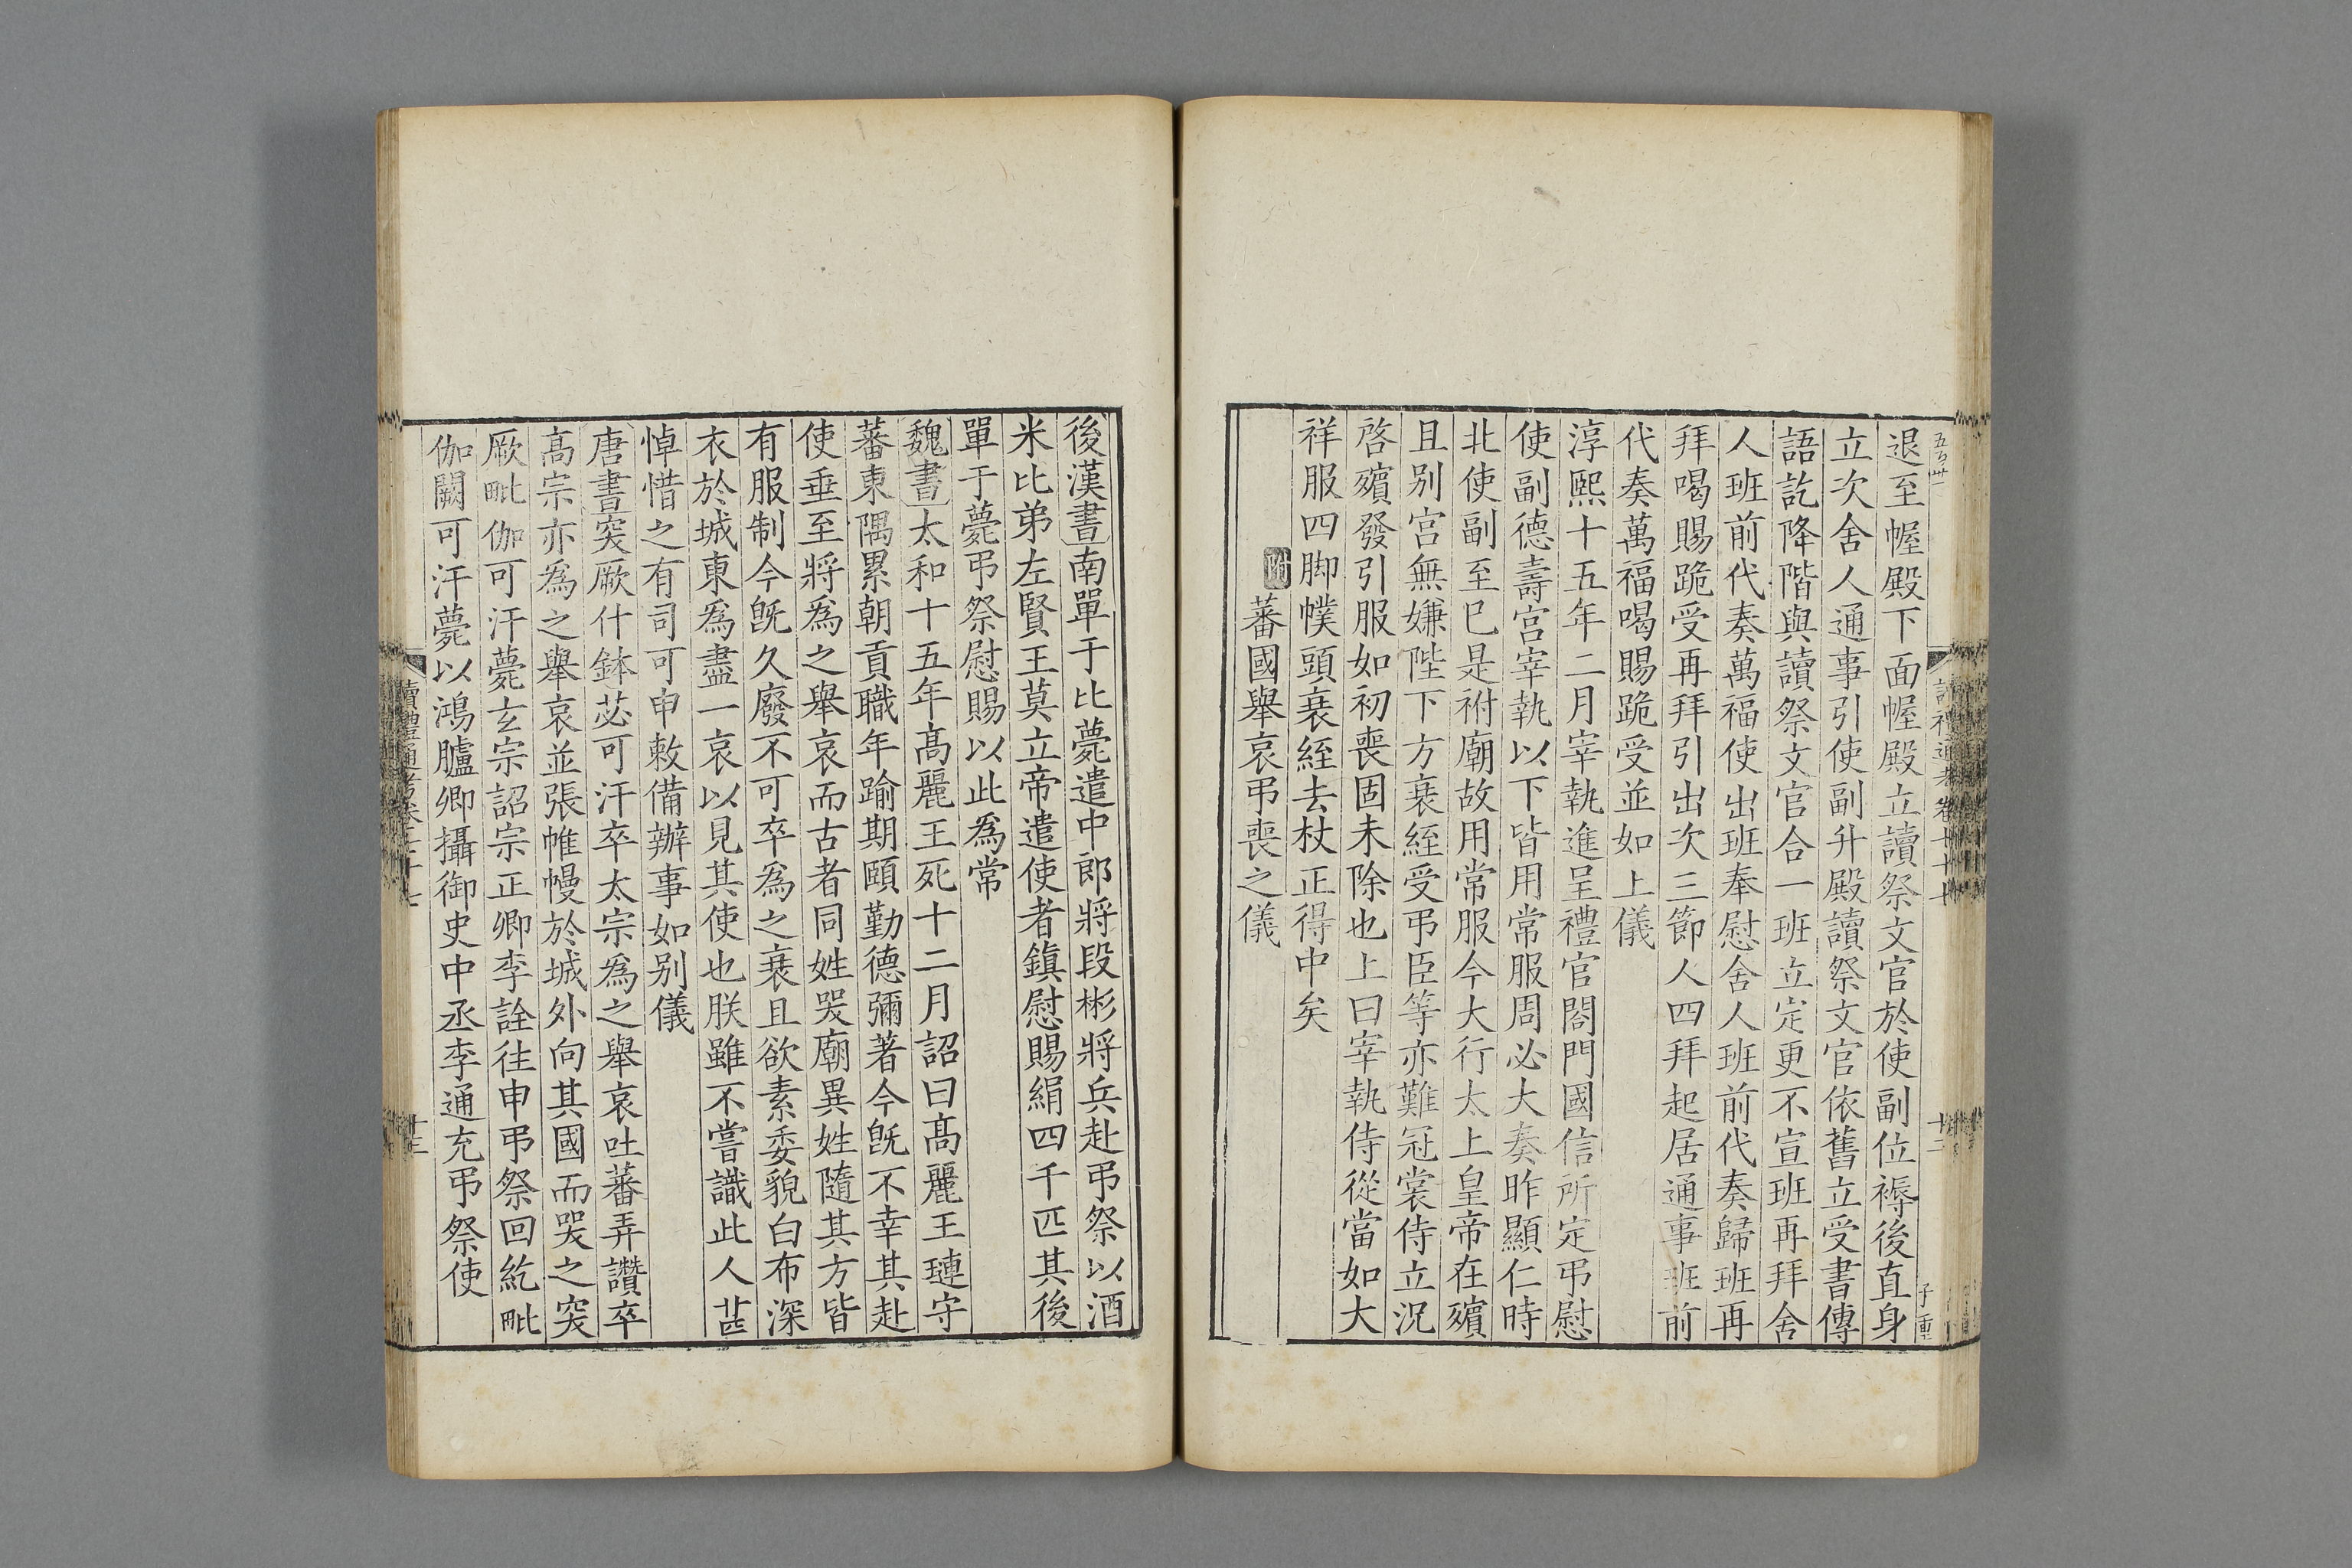 退至幄殿下面幄殿立讀祭文官於使副位褥後直身
立次舍人通事引使副升殿讀祭文官依舊立受書傳
語訖降階與讀祭文官合一班立定更不宣班再拜舍
人班前代奏萬福使出班奉慰舍人班前代奏歸班再
拜喝賜跪受再拜引出次三節人四拜起居通事班前
代奏萬福喝賜跪受並如上儀
淳熙十五年二月宰執進呈禮官閤門國信所定弔慰
使副德壽宮宰執以下皆用常服周必大奏昨顯仁時
北使副至巳是祔廟故用常服今大行太上皇帝在殯
且別宮無嫌陛下方衰絰受弔臣等亦難冠裳侍立況
啓殯發引服如初喪固未除也上曰宰執侍從當如大
祥服四脚幞頭衰絰去杖正得中矣
附蕃國舉哀弔喪之儀
後漢書南單于比薨遣中郎將段彬將兵赴弔祭以酒
米比弟左賢王莫立帝遣使者鎮慰賜絹四千匹其後
單于薨弔祭慰賜以此爲常
魏書太和十五年髙麗王死十二月詔曰髙麗王璉守
蕃東隅累朝貢職年踰期頤勤德彌著今旣不幸其赴
使垂至將爲之舉哀而古者同姓哭廟異姓隨其方皆
有服制今旣久廢不可卒爲之衰且欲素委貌白布深
衣於城東爲盡一哀以見其使也朕雖不嘗識此人甚
悼惜之有司可申敕備辦事如別儀
唐書突厥什鉢苾可汗卒太宗爲之舉哀吐蕃弄讚卒
髙宗亦爲之舉哀並張帷幔於城外向其國而哭之突
厥毗伽可汗薨玄宗詔宗正卿李詮往申弔祭回紇毗
伽闕可汗薨以鴻臚卿攝御史中丞李通充弔祭使
讀禮通考卷
十三